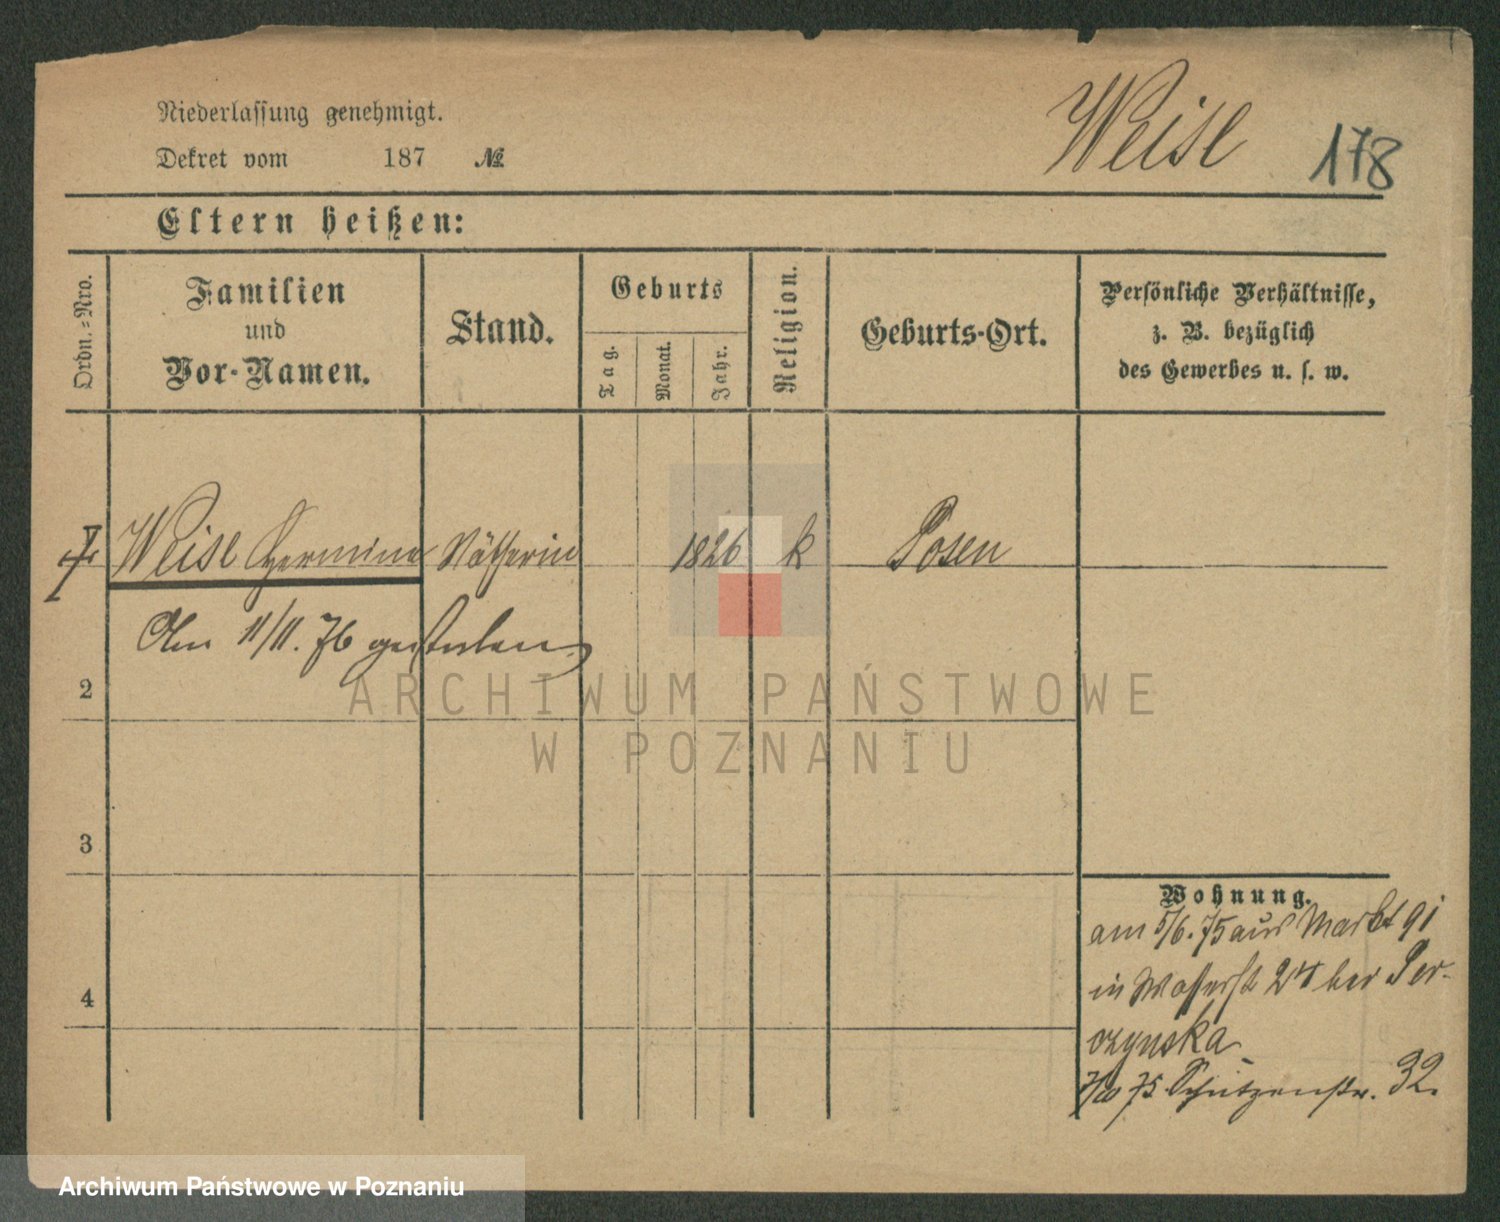 Niederlassung genehmigt.
Dekret vom 187 №
Weise 178
Eltern heißen:
Ordn.=Nro.
Familien
und
Vor-Namen.
Stand.
Geburts
Tag.
Monat.
Jahr.
Religion.
Geburts-Ort.
Persönliche Verhältnisse,
z. B. bezüglich
des Gewerbes u. s. w.
Weise Hermine Nätherin 1826 k Posen
Am 11/11. 76 gestorben
2
3
4
Wohnung.
am 5/6. 75 aus Markt 91
in Wasserstr 24 bei Per-
czynska
75 Schützenstr. 32.
ARCHIWUM PAŃSTWOWE
W POZNANIU
Archiwum Państwowe w Poznaniu